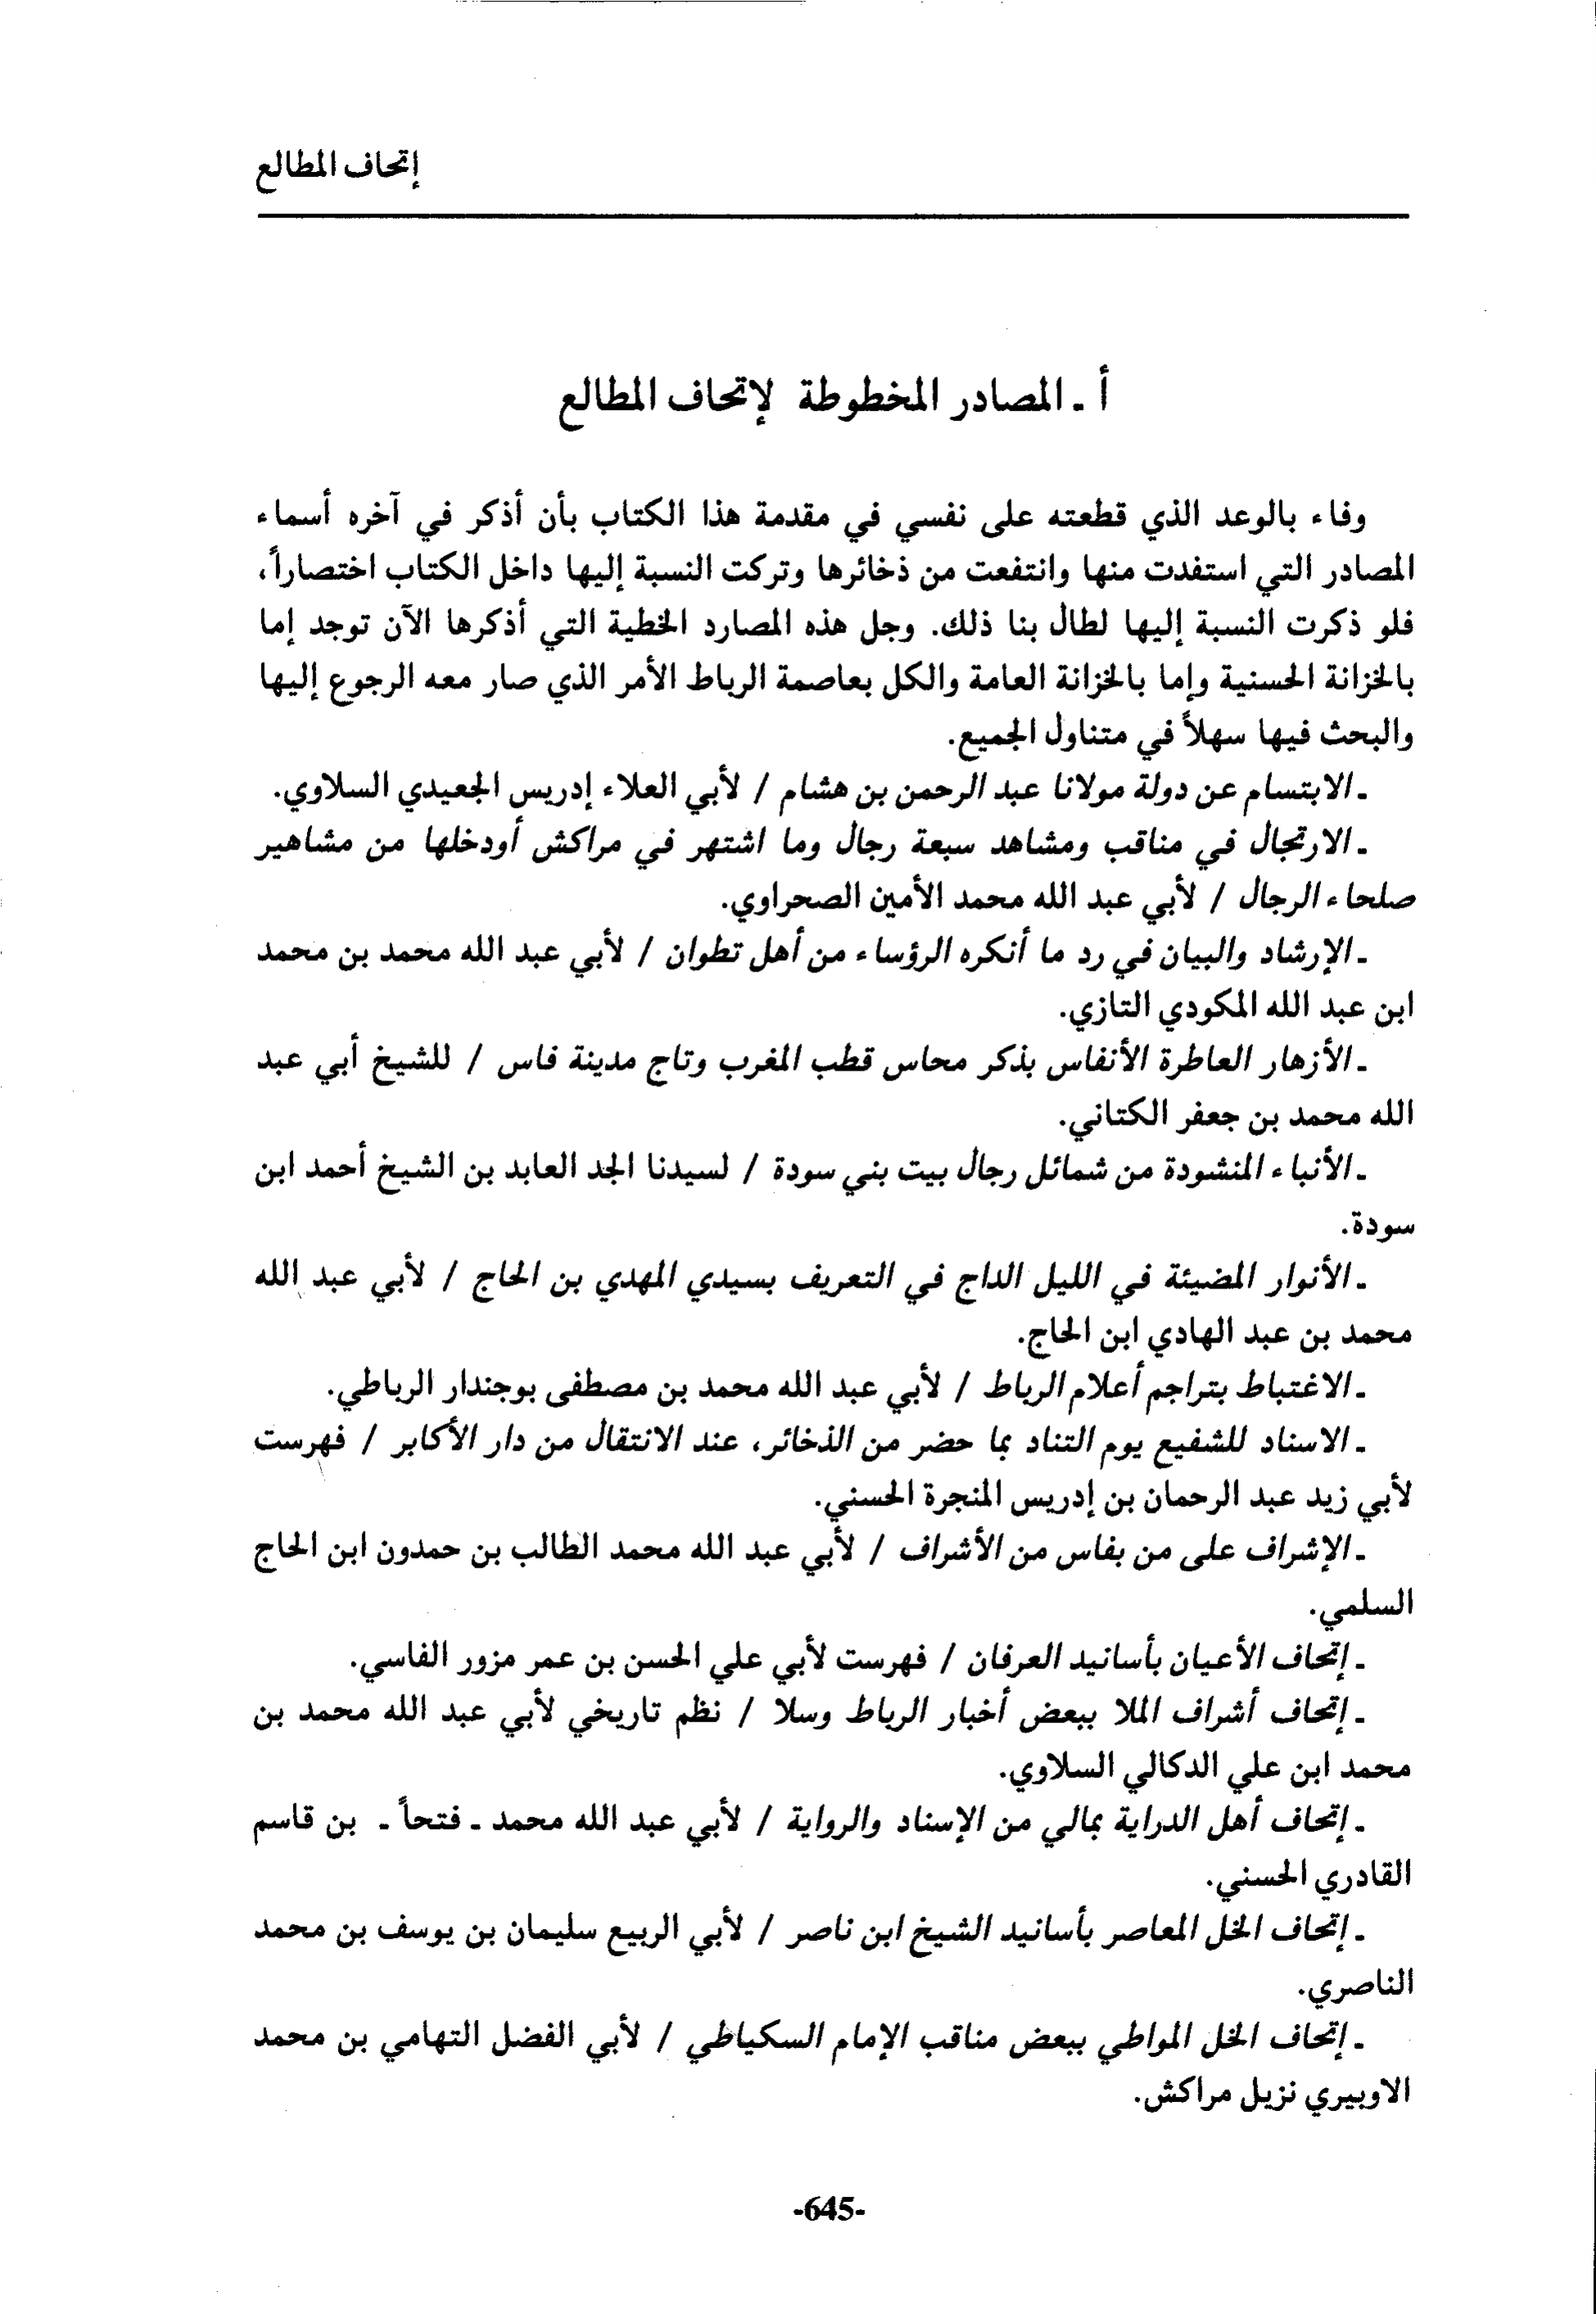 إتحاف المطالع
أ ـ المصادر المخطوطة لإتحاف المطالع
وفاء بالوعد الذي قطعته على نفسي في مقدمة هذا الكتاب بأن أذكر في آخره أسماء
المصادر التي استفدت منها وانتفعت من ذخائرها وتركت النسبة إليها داخل الكتاب اختصاراً،
فلو ذكرت النسبة إليها لطال بنا ذلك. وجل هذه المصارد الخطية التي أذكرها الآن توجد إما
بالخزانة الحسنية وإما بالخزانة العامة والكل بعاصمة الرباط الأمر الذي صار معه الرجوع إليها
والبحث فيها سهلاً في متناول الجميع.
ـ الابتسام عن دولة مولانا عبد الرحمن بن هشام / لأبي العلاء إدريس الجعيدي السلاوي.
ـ الارتجال في مناقب ومشاهد سبعة رجال وما اشتهر في مراكش أودخلها من مشاهير
صلحاء الرجال / لأبي عبد الله محمد الأمين الصحراوي.
ـ الإرشاد والبيان في رد ما أنكره الرؤساء من أهل تطوان / لأبي عبد الله محمد بن محمد
ابن عبد الله المكودي التازي.
ـ الأزهار العاطرة الأنفاس بذكر محاس قطب المغرب وتاج مدينة فاس / للشيخ أبي عبد
الله محمد بن جعفر الكتاني.
ـ الأنباء المنشودة من شمائل رجال بيت بني سودة / لسيدنا الجد العابد بن الشيخ أحمد ابن
سودة.
ـ الأنوار المضيئة في الليل الداج في التعريف بسيدي المهدي بن الحاج / لأبي عبد الله
محمد بن عبد الهادي ابن الحاج.
ـ الاغتباط بتراجم أعلام الرباط / لأبي عبد الله محمد بن مصطفى بوجندار الرباطي.
ـ الاسناد للشفيع يوم التناد بما حضر من الذخائر، عند الانتقال من دار الأكابر / فهرست
لأبي زيد عبد الرحمان بن إدريس المنجرة الحسني.
ـ الإشراف على من بفاس من الأشراف / لأبي عبد الله محمد الطالب بن حمدون ابن الحاج
السلمي.
ـ إتحاف الأعيان بأسانيد العرفان / فهرست لأبي علي الحسن بن عمر مزور الفاسي.
ـ إتحاف أشراف الملا ببعض أخبار الرباط وسلا / نظم تاريخي لأبي عبد الله محمد بن
محمد ابن علي الدكالي السلاوي.
ـ إتحاف أهل الدراية بمالي من الإسناد والرواية / لأبي عبد الله محمد ـ فتحاً ـ بن قاسم
القادري الحسني.
ـ إتحاف الخل المعاصر بأسانيد الشيخ ابن ناصر / لأبي الربيع سليمان بن يوسف بن محمد
الناصري.
ـ إتحاف الخل المواطي ببعض مناقب الإمام السكياطي / لأبي الفضل التهامي بن محمد
الاوبيري نزيل مراكش.
-645-